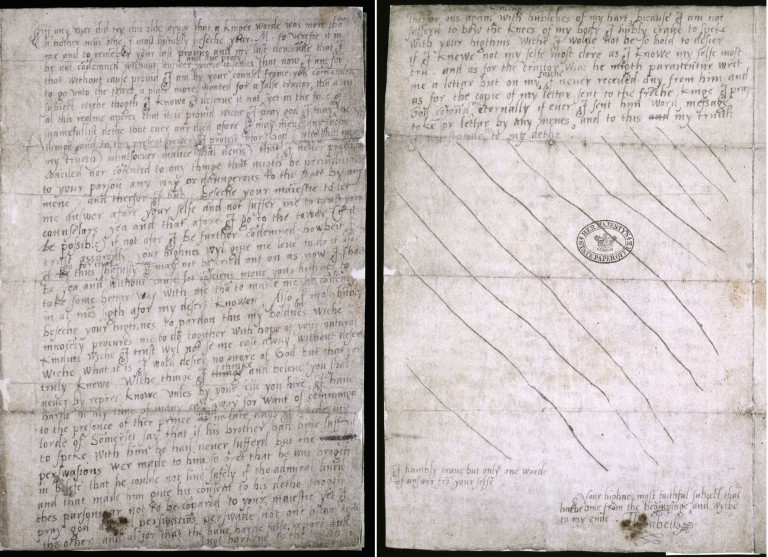 If any ever did try this olde saynge that a kinges worde was more than
a nother mans othe I most humbly beseche your M. to verefie it in
me and to remember your last promis and my last demaunde that I
be not condemned without answer and due profe wiche it semes that now I am for
that without cause provid I am by your counsel frome you commanded
to go unto the tower a place more wonted for a false traitor, than a tru
subject wiche thogth I knowe I deserve it not, yet in the face of
al this realme aperes that it is provid. wiche I pray god I may
dy the shamefullist dethe that ever any died afore I may mene any suche
thinge and to this present hower I protest afor God who shal juge
my trueth whatsoever malice shal devis that I never practised
conciled nor consented to any thinge that might be prejudicial
to your parson any way or daungerous to the state by any
mene and therfor I humbly beseche your maiestie to let
me answer afore your selfe and not suffer me to trust your
counselors yea and that afore I go to the tower if it
be possible if not afor I be further condemned howbeit I
trust assuredly your highnes wyl give me leve to do it afor
I go for that thus shamfully I may not be cried out on as now I shal
be yea and without cause let consciens move your highnes to
take some bettar way with me than to make me be condemned
in al mens sigth afor my desert knowen. Also I most humbly
beseche your higthnes to pardon this my boldnes wiche
innocency procures me to do togither with hope of your natural
kindnis wiche I trust wyl not se me cast away without desert
wiche what it is I wold desier no more of God but that you
truly knewe. Wiche thinge I thinke and beleve you shal
never by report knowe unles by your selfe you hire. I have
harde in my time of many cast away for want of comminge
to the presence of ther prince and in late days I harde my
lorde of Somerset say that if his brother had bine sufferd
to speke with him he had never sufferd but the
perswasions wer made to him so gret that he was brogth
in belefe that he coulde not live safely if the admiral lived
and that made him give his consent to his dethe thogth
thes parsons ar not to be compared to your maiestie yet I
pray god as ivel perswasions perswade not one sistar again
the other and al for that the have harde false report and

therfor ons again with humblenes of my hart, bicause I am not
sufferd to bow the knees of my body I humbly crave to speke
with your higthnis wiche I wolde not be so bold to desier
if I knewe not my selfe most clere as I knowe my selfe most
tru. and as for the traitor Wiat he migth paraventur writ
me a lettar but on my faithe I never received any from him and
as for the copie of my lettar sent to the frenche kinge I pray
God confound me eternally if ever I sent him word, message,
token or lettar by any menes, and to this my truith
I wil stande in to my dethe

HER MAJESTY'S STATE PAPER OFFICE

I humbly crave but only one worde
of answer from your selfe

Your highnes most faithful subject that
hathe bine from the beginninge, and wylbe
to my ende. Elizabeth